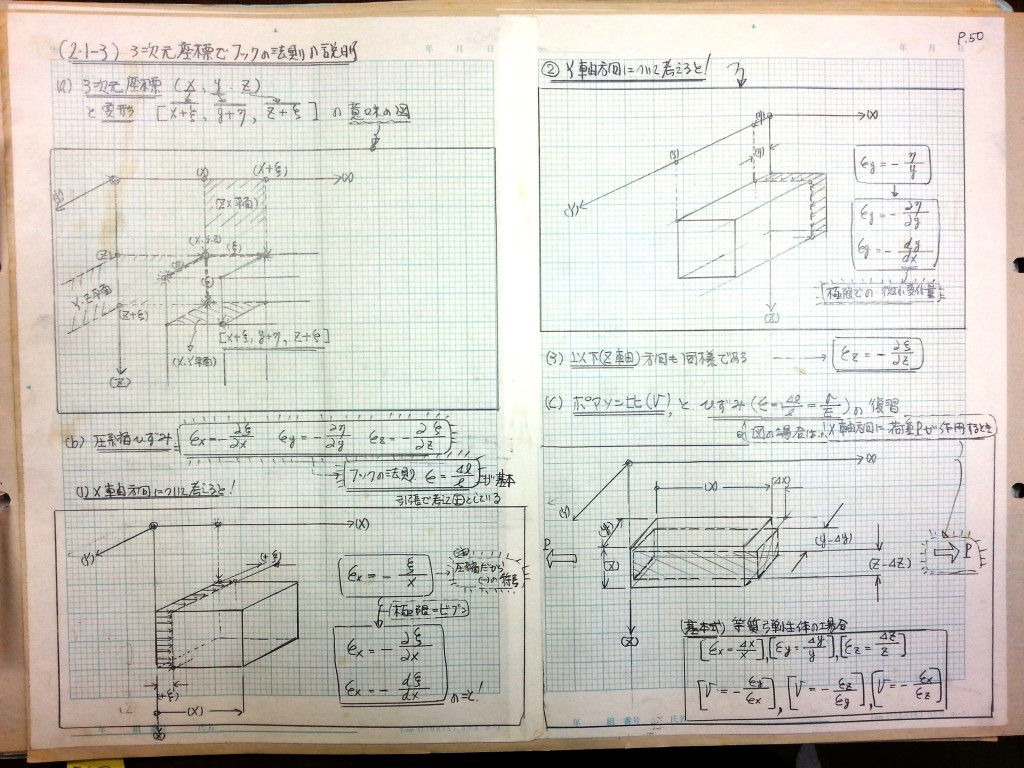 (2・1-3) 3次元座標でフックの法則の説明
(a) 3次元座標 (x, y, z)
と変形 [x+ξ, y+η, z+ξ] の意味の図
(X) (x+ξ) (X)
(ZX平面)
(Y)
(x,y,z) (ξ)
(Z)
Y,Z平面
(z+ξ)
[x+ξ, y+η, z+ξ]
(X,Y平面)
(Z)
(b) 圧縮ひずみ εx=-∂ξ/∂x εy=-∂η/∂y εz=-∂ξ/∂z
フックの法則 ε=Δl/l が基本
引張で考え正としている
(1) X軸方向について考えると!
(X)
(Y)
(+ξ)
εx=-ξ/x
圧縮だから
(-)の符号
(極限=ビブン)
εx=-∂ξ/∂x
εx=-dξ/dx のこと!
(+ξ)
(X)
(Z)
年 組 番号 氏名
年 月 日
P.50
② Y軸方向について考えると!
(X)
(η)
(y)
(Y)
εy=-η/y
εy=-∂η/∂y
εy=-dy/dx
「極限での微小変位量」
(Z)
(3) 以下(Z軸)方向も同様である
εz=-∂ξ/∂z
(C) ポアソン比(ν)と ひずみ(ε=Δl/l=σ/E)の復習
図の場合は、X軸方向に荷重Pが作用するとき
(X)
(X) (ΔX)
(Y)
(y)
(y-Δy)
P
(Z)
(Z-ΔZ)
P
(Z)
(基本式) 等質弾性体の場合
[εx=Δx/x], [εy=Δy/y], [εz=Δz/z]
[ν=-εy/εx], [ν=-εz/εy], [ν=-εx/εz]
年 組 番号 氏名